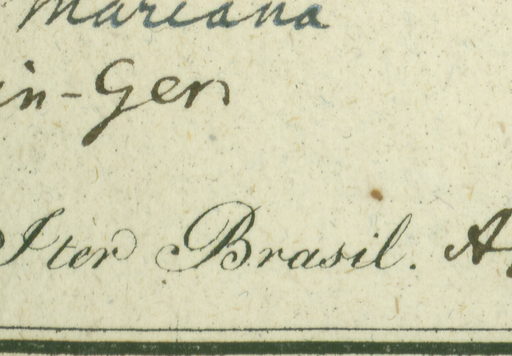 Mariana
in-Ger
Iter Brasil. A